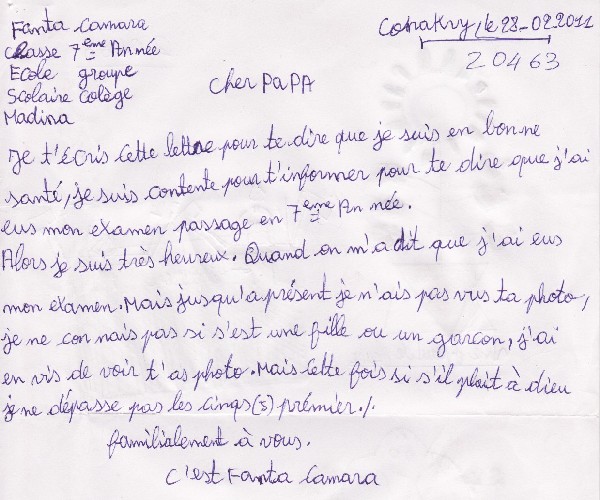 Fanta Camara
Classe 7ème Année
Ecole groupe
Scolaire Colège
Madina
Conakry, le 28-02.2011
20463
Cher PaPA
Je t'écris cette lettre pour te dire que je suis en bonne
santé, je suis contente pour t'informer pour te dire que j'ai
eus mon examen passage en 7eme Année.
Alors je suis très heureux. Quand on m'a dit que j'ai eus
mon examen. Mais jusqu'a présent je n'ais pas vus ta photo,
je ne connais pas si s'est une fille ou un garcon, j'ai
en vis de voir t'as photo. Mais cette fois si s'il plait à dieu
je ne dépasse pas les cinqs(5) prémier./.
familialement à vous.
C'est Fanta Camara